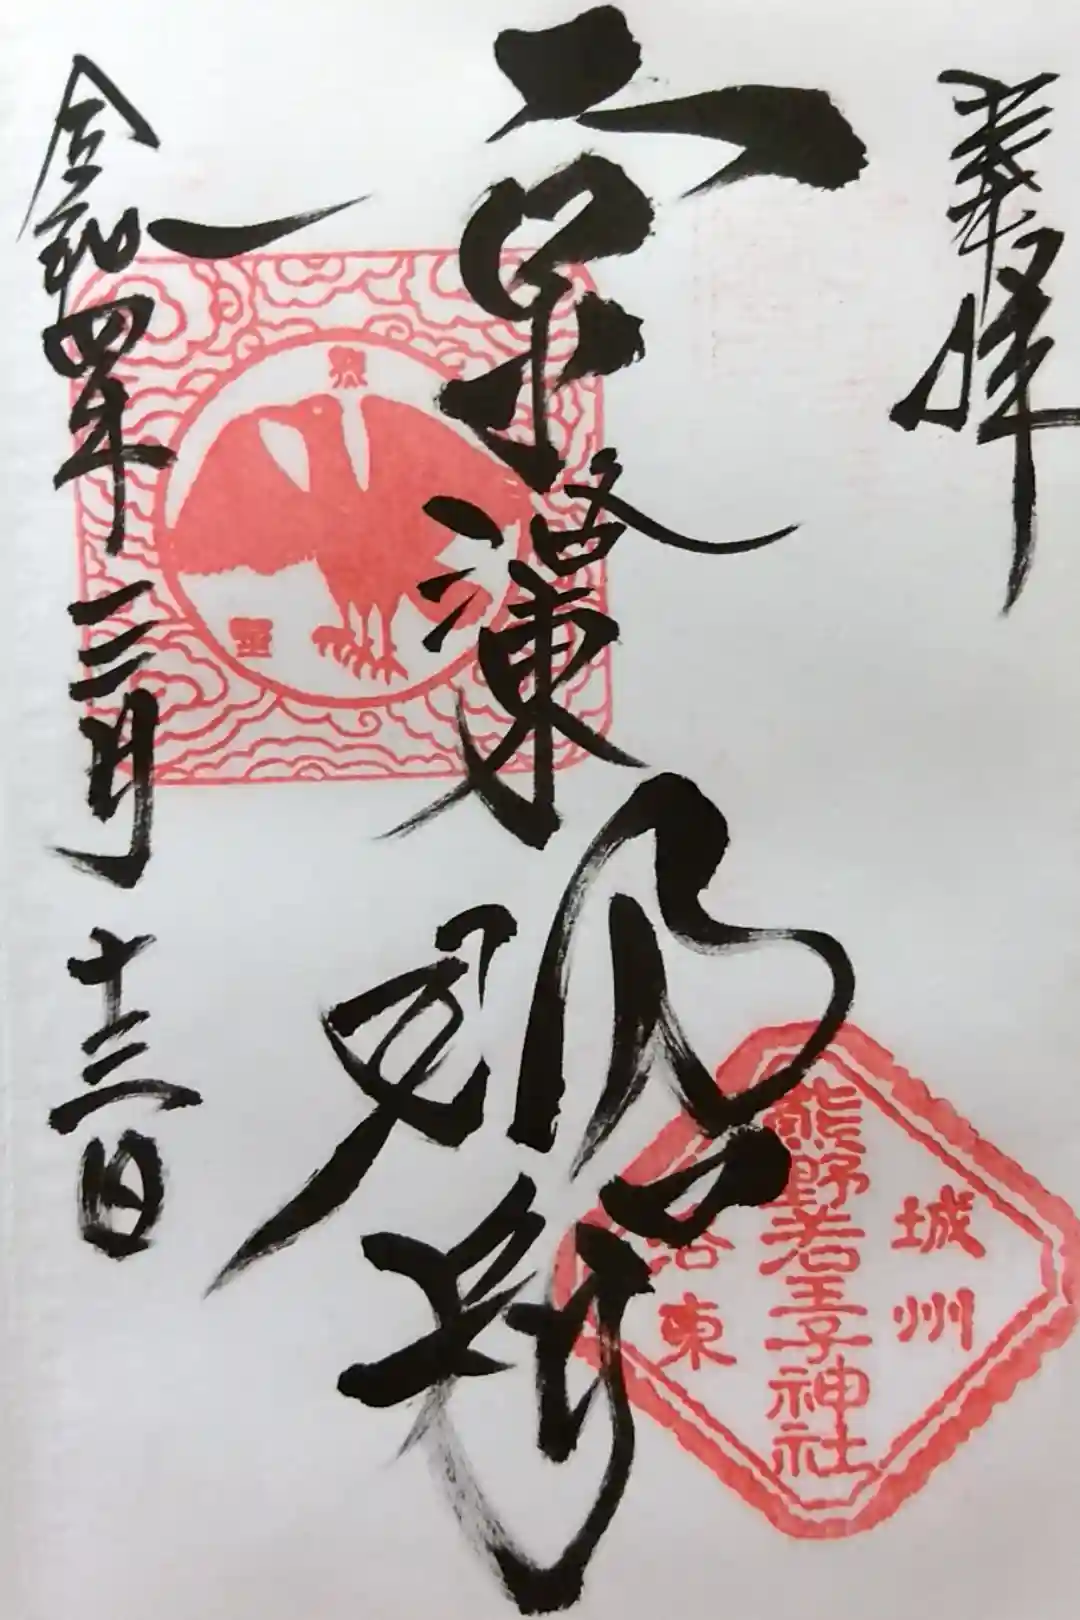 奉拝
京洛東
那智
熊野
城州
熊野若王子神社
洛東
令和四年三月十三日